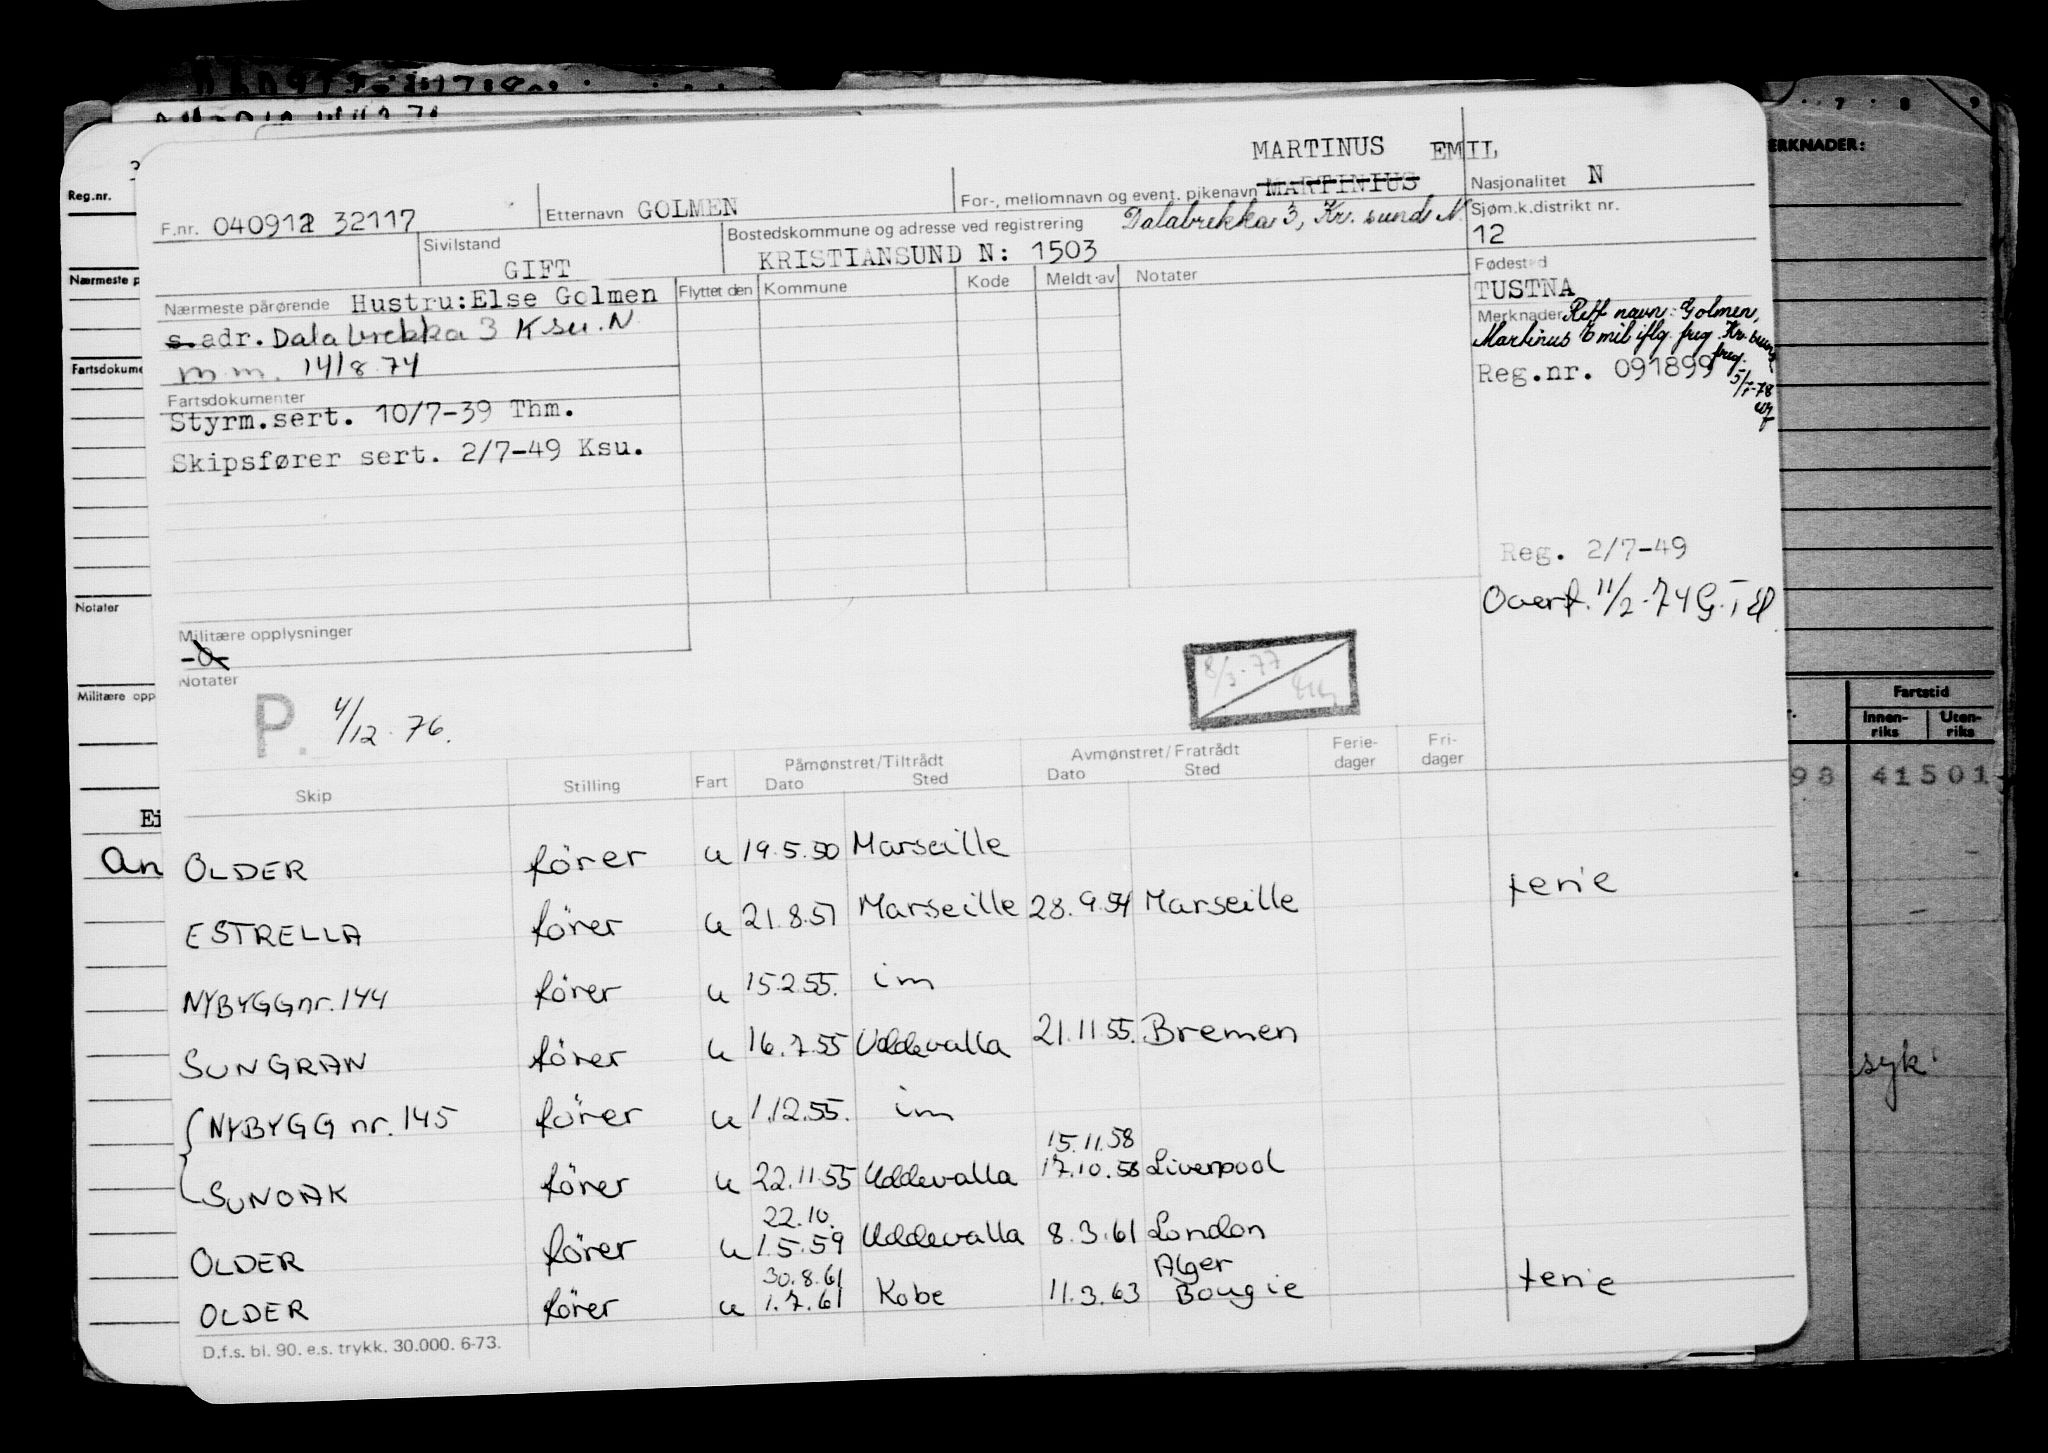 MARTINUS EMIL
F.nr. 040912 32117
Etternavn GOLMEN
For-, mellomnavn og event. pikenavn MARTINIUS
Nasjonalitet N
Sivilstand
GIFT
Bostedskommune og adresse ved registrering Dalabrekka 3, Kr. sund N.
KRISTIANSUND N: 1503
Sjøm.k.distrikt nr.
12
Nærmeste pårørende Hustru:Else Golmen
s.adr. Dalabrekka 3 Ksu.N
m.m. 14/8 74
Flyttet den Kommune Kode Meldt av Notater
Fødested
TUSTNA
Merknader Rett navn: Golmen,
Martinus Emil iflg. freg. Kr.sund
freg.
5/1-78
Reg.nr. 091899
Fartsdokumenter
Styrm.sert. 10/7-39 Thm.
Skipsfører sert. 2/7-49 Ksu.
Reg. 2/7-49
Overf. 11/2-74 G.T
Militære opplysninger
-0-
Notater
P. 4/12-76.
8/3-77
Skip Stilling Fart Påmønstret/Tiltrådt Dato Sted Avmønstret/Fratrådt Dato Sted Ferie-dager Fri-dager
OLDER förer u 19.5.50 Marseille
ESTRELLA förer u 21.8.51 Marseille 28.9.54 Marseille ferie
NYBYGG nr. 144 förer u 15.2.55. im
SUNGRAN förer u 16.7.55 Uddevalla 21.11.55. Bremen
NYBYGG nr. 145 förer u 1.12.55. im
15.11.58
SUNOAK förer u 22.11.55 Uddevalla 17.10.58 Liverpool
22.10.
OLDER förer u 1.5.59 Uddevalla 8.3.61 London
30.8.61 Alger
OLDER förer u 1.7.61 Kobe 11.3.63 Bougie ferie
D.f.s. bl. 90. e.s. trykk. 30.000. 6-73.
Reg.nr.
Nærmeste p
Fartsdokume
Notater
Militære opp
Ei
an
7 8 9
ERKNADER:
Fartstid
Innen-riks Uten-riks
98 41501
syk